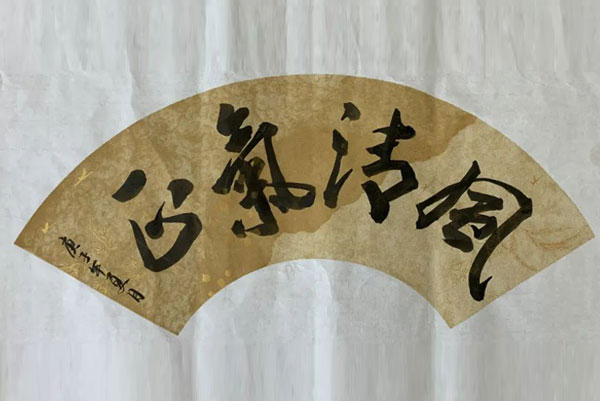 風清氣正
庚子年夏月